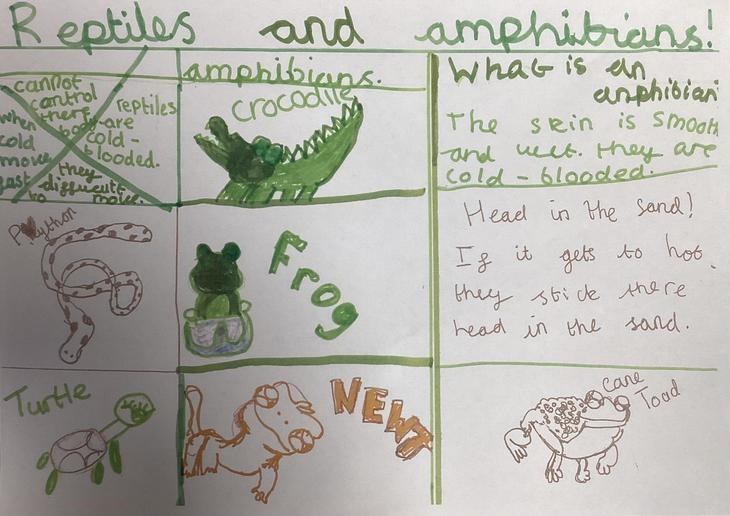 Reptiles and amphibians!
cannot
control
there
body are
when
cold
move
fast
reptiles
cold-
blooded.
they
difficult
to move.
amphibians.
crocodile
What is an
amphibian
The skin is smooth
and wet. they are
cold-blooded.
Python
Frog
Head in the sand!
If it gets to hot.
they stick there
head in the sand.
Turtle
NEWT
cane
Toad